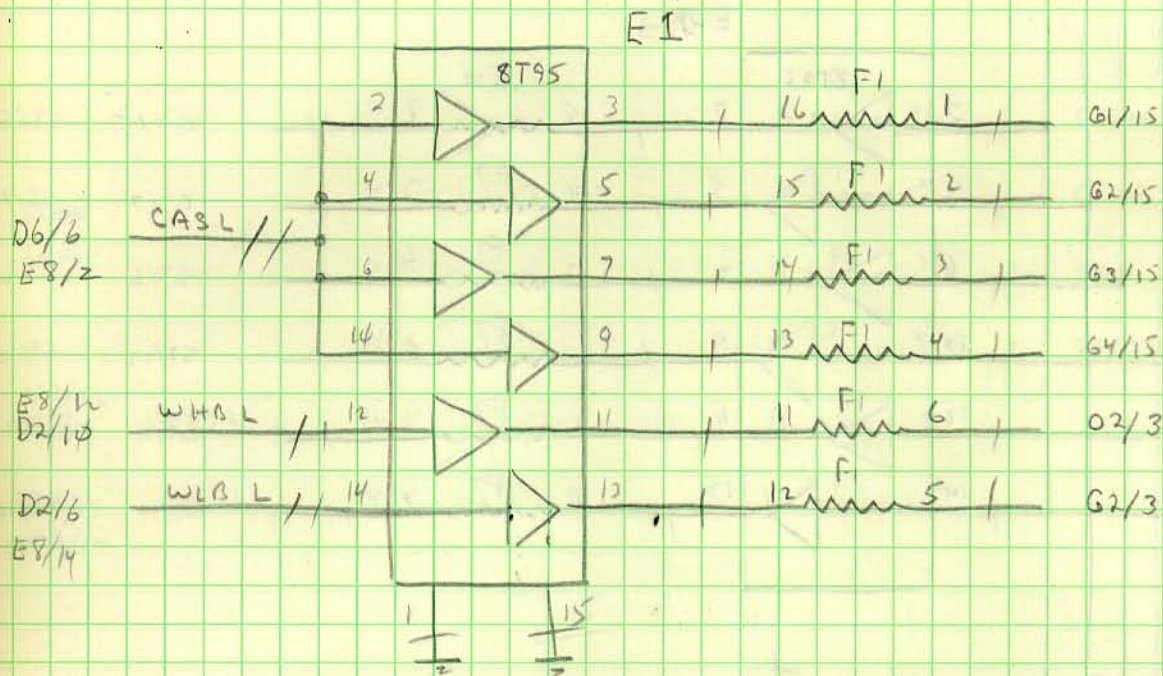 E1
8T95
2 3 16 F1 1 G1/15
4 5 15 F1 2 G2/15
D6/6 CASL
E8/2 6 7 14 F1 3 G3/15
14 9 13 F1 4 G4/15
E8/12
D2/10 WHBL 12 11 11 F1 6 02/3
D2/6 WLB L 14 13 12 F1 5 G2/3
E8/14
1 15